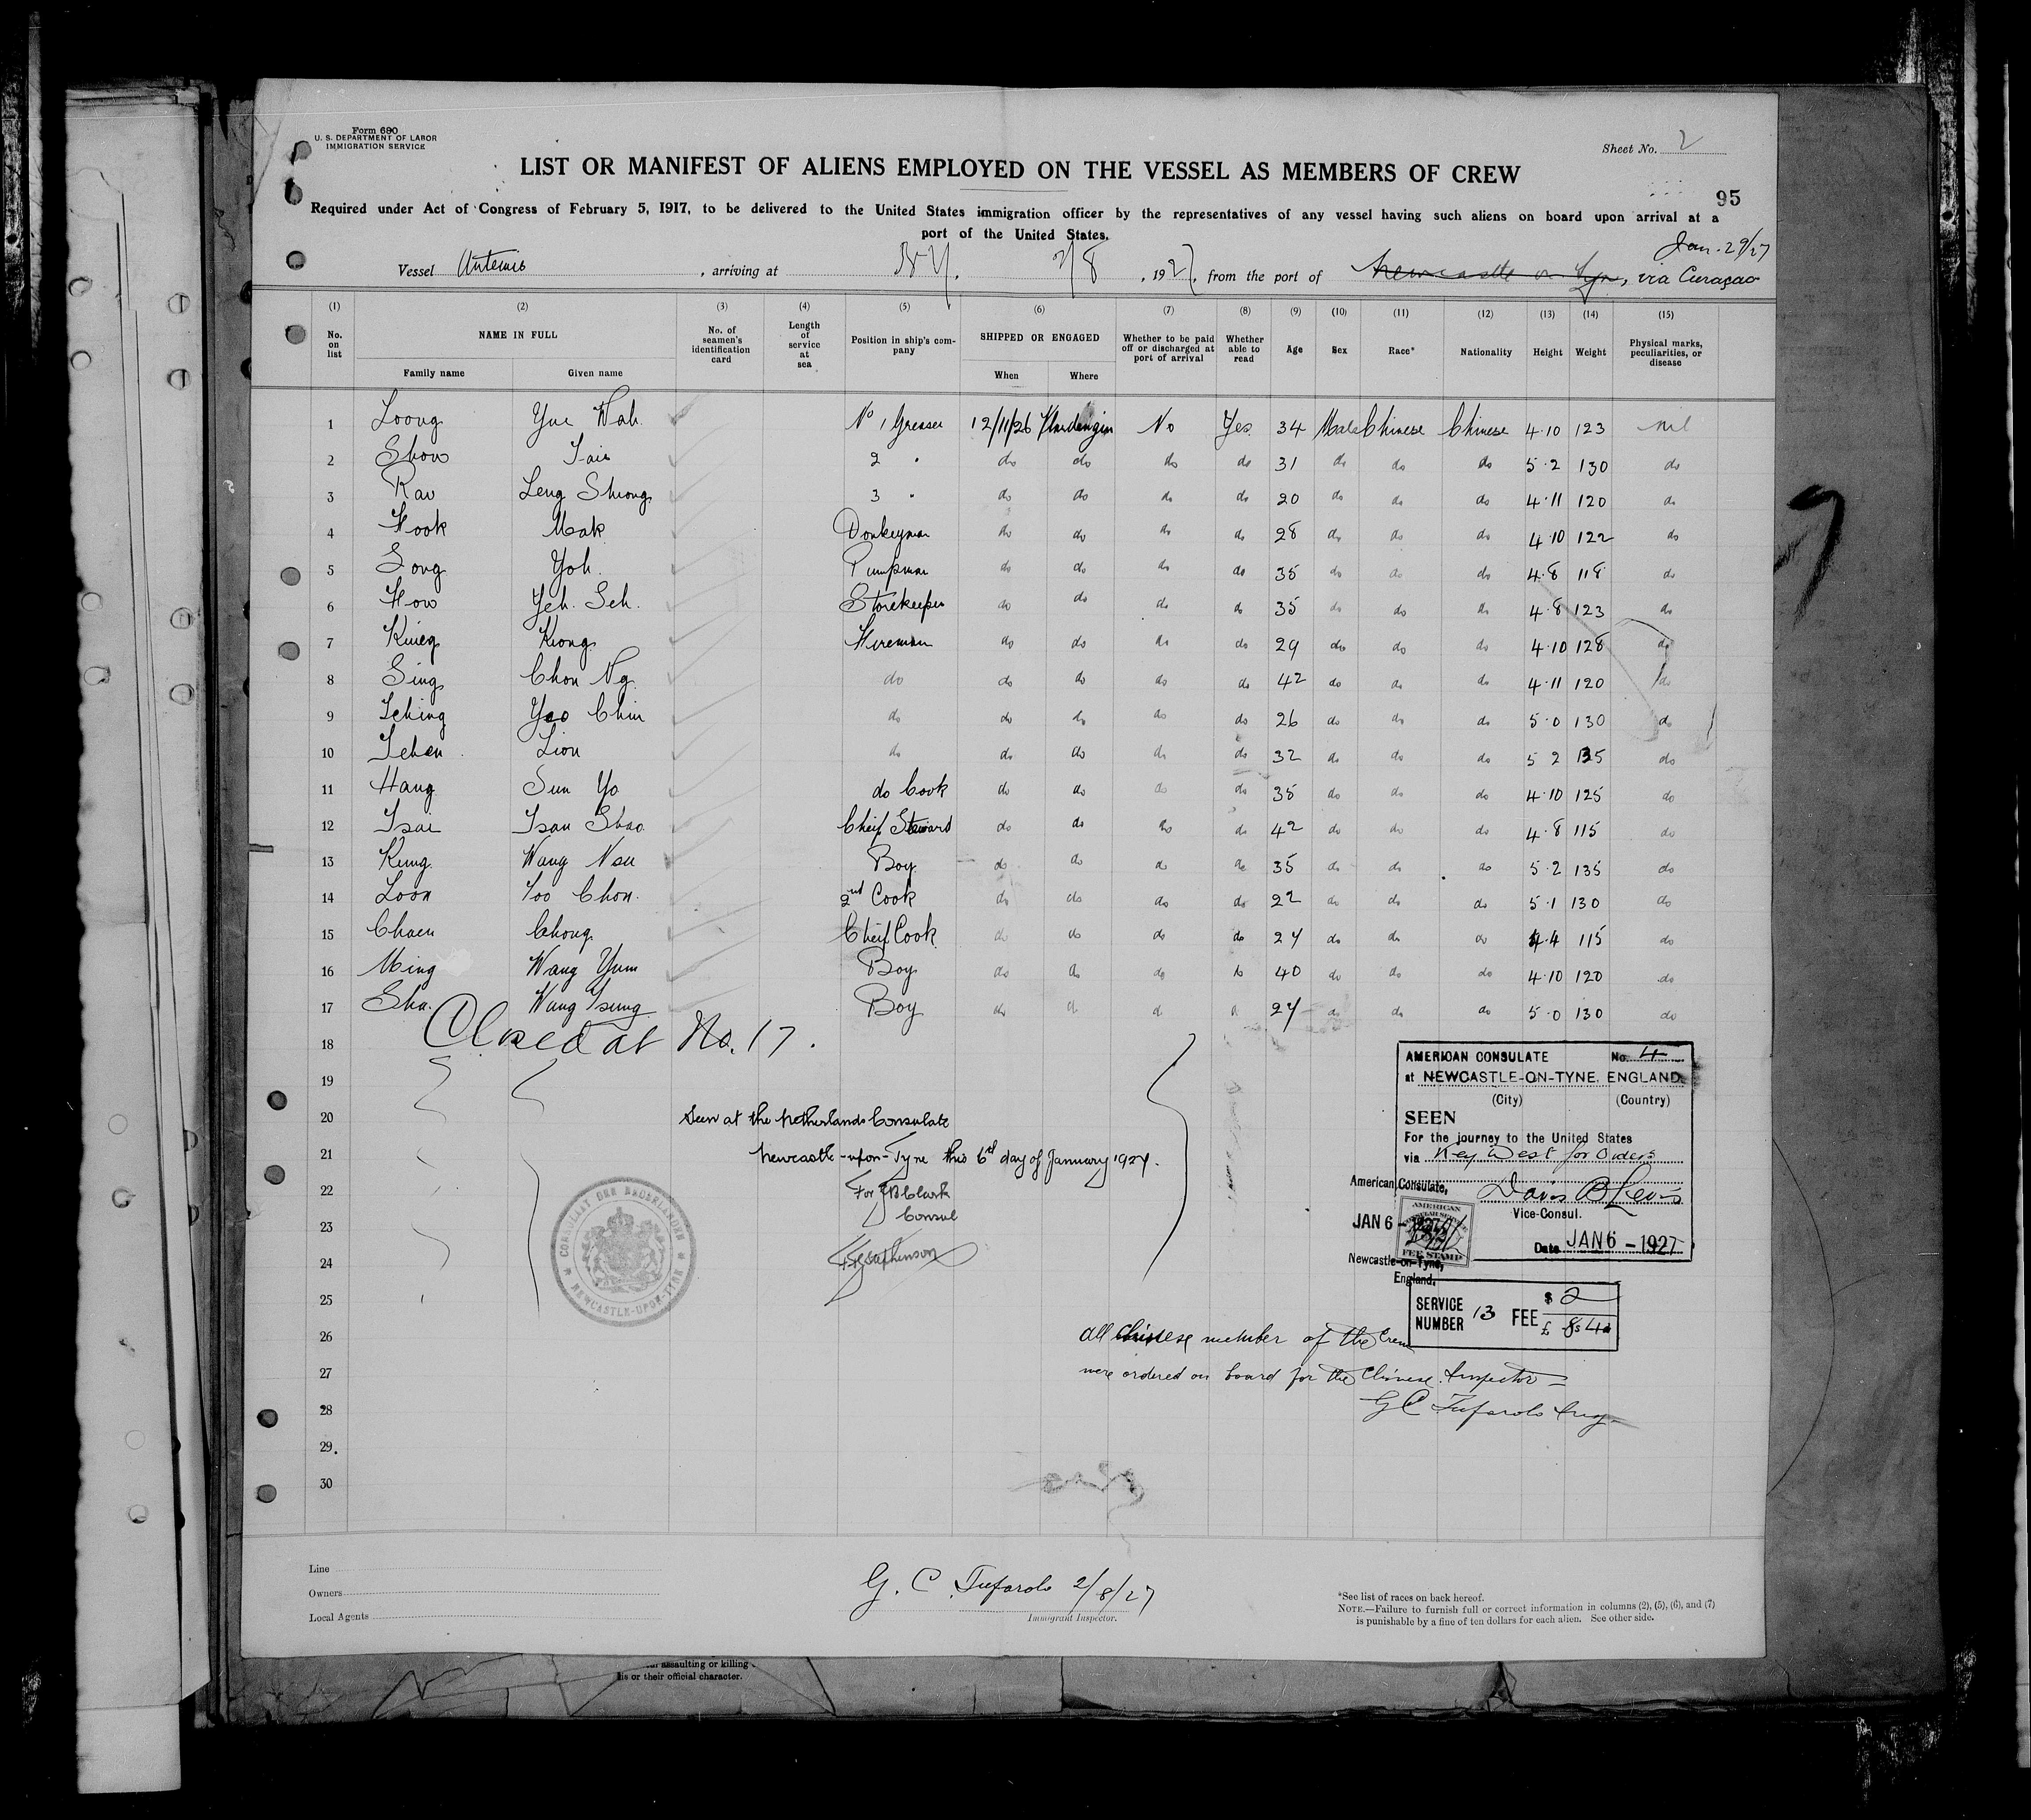 Form 680
U. S. DEPARTMENT OF LABOR
IMMIGRATION SERVICE
Sheet No. 2
LIST OR MANIFEST OF ALIENS EMPLOYED ON THE VESSEL AS MEMBERS OF CREW
95
Required under Act of Congress of February 5, 1917, to be delivered to the United States immigration officer by the representatives of any vessel having such aliens on board upon arrival at a
port of the United States.
Jan. 29/27
Vessel Artemis, arriving at N.Y. 2/8, 1927, from the port of Newcastle on Tyne, via Curaçao
(1) (2) (3) (4) (5) (6) (7) (8) (9) (10) (11) (12) (13) (14) (15)
No. on list NAME IN FULL Family name Given name No. of seamen's identification card Length of service at sea Position in ship's company SHIPPED OR ENGAGED When Where Whether to be paid off or discharged at port of arrival Whether able to read Age Sex Race* Nationality Height Weight Physical marks, peculiarities, or disease
1 Loong Yue Wah. No 1 Greaser 12/11/26 No Yes 34 Male Chinese Chinese 4.10 123 nil
2 Show 2 " do do do do 31 do do do 5.2 130 do
3 Rav Leng Shiong 3 " do do do do 20 do do do 4.11 120 do
4 Hook Mak Donkeyman do do do do 28 do do do 4.10 122 do
5 Song Yoh. Pumpman do do do do 35 do do do 4.8 118 do
6 How Yeh. Seh. Storekeeper do do do do 35 do do do 4.8 123 do
7 Kiong Fireman do do do do 29 do do do 4.10 128 do
8 Sing Chon Ng. do do do do do 42 do do do 4.11 120 do
9 Tching Yao Chin do do do do do 26 do do do 5.0 130 do
10 Tchen Lion do do do do do 32 do do do 5 2 135 do
11 Hang Sun Yo do Cook do do do do 35 do do do 4.10 125 do
12 Tsai Tsau Shao Cheif Steward do do do do 42 do do do 4.8 115 do
13 Kung Wang Nsu Boy do do do do 35 do do do 5.2 135 do
14 Loon Foo Chon. 2nd Cook do do do do 22 do do do 5.1 130 do
15 Chaen Chong Cheif Cook do do do do 24 do do do 4.4 115 do
16 Ming Wang Yum Boy do do do do 40 do do do 4.10 120 do
17 Sha. Wang Tseng Boy do do do do 24 do do do 5.0 130 do
Closed at No. 17.
18
19
20
21
22
23
24
25
26
27
28
29.
30
Seen at the Netherlands Consulate
Newcastle-upon-Tyne this 6th day of January 1927.
For Clark
Consul
CONSULAAT DER NEDERLANDEN
NEWCASTLE-UPON-TYNE
AMERICAN CONSULATE No. 4
at NEWCASTLE-ON-TYNE. ENGLAND.
(City) (Country)
SEEN
For the journey to the United States
via Key West for Orders
Vice-Consul.
Date JAN 6 - 1927
American Consulate,
JAN 6 - 1927
Newcastle-on-Tyne,
England.
AMERICAN
CONSULAR SERVICE
FEE STAMP
SERVICE NUMBER 13 FEE $ 2
£ 8s 4d
All Chinese member of the Crew
were ordered on board for the Chinese Inspector
G C Tufarolo Insp.
Line
Owners
Local Agents
G. C. Tufarolo 2/8/27
Immigrant Inspector.
*See list of races on back hereof.
NOTE.—Failure to furnish full or correct information in columns (2), (5), (6), and (7)
is punishable by a fine of ten dollars for each alien. See other side.
assaulting or killing
his or their official character.